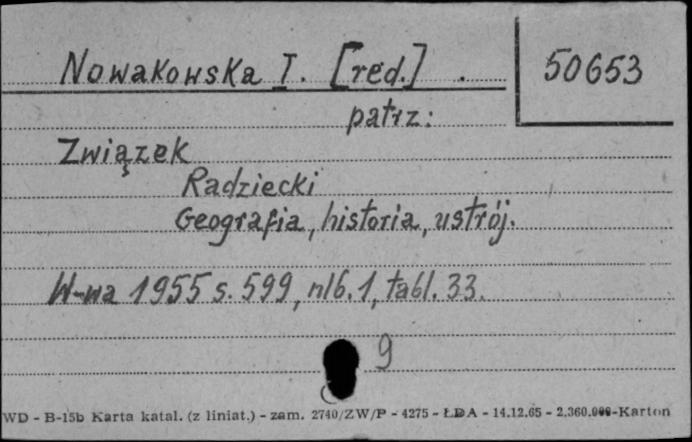 Nowakowska I. [red.] .
50653
patrz:
Związek
Radziecki
Geografia, historia, ustrój.
W-wa 1955 s. 599, nlb. 1, tabl. 33.
9
WD - B-15b Karta katal. (z liniat.) - zam. 2740/ZW/P - 4275 - ŁDA - 14.12.65 - 2.360.000-Karton